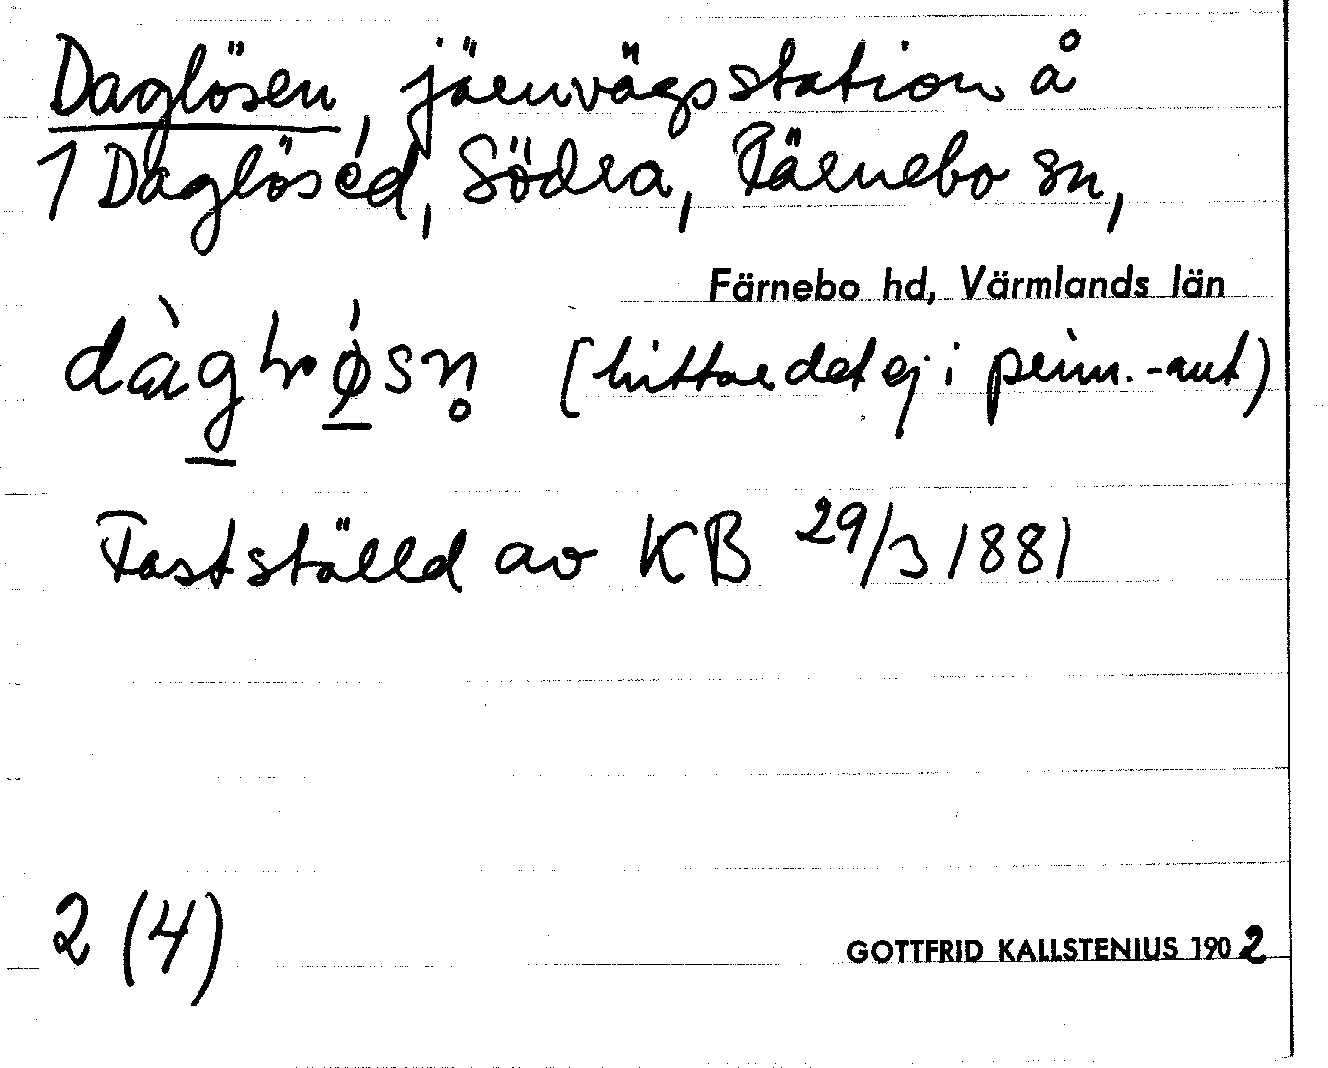 Daglösen, järnvägsstation å
1 Daglösed, Södra, Färnebo sn,
Färnebo hd, Värmlands län
(hittar det ej i prim.-aut)
Fastställd av KB 29/3 1881
2 (4)
GOTTFRID KALLSTENIUS 1902